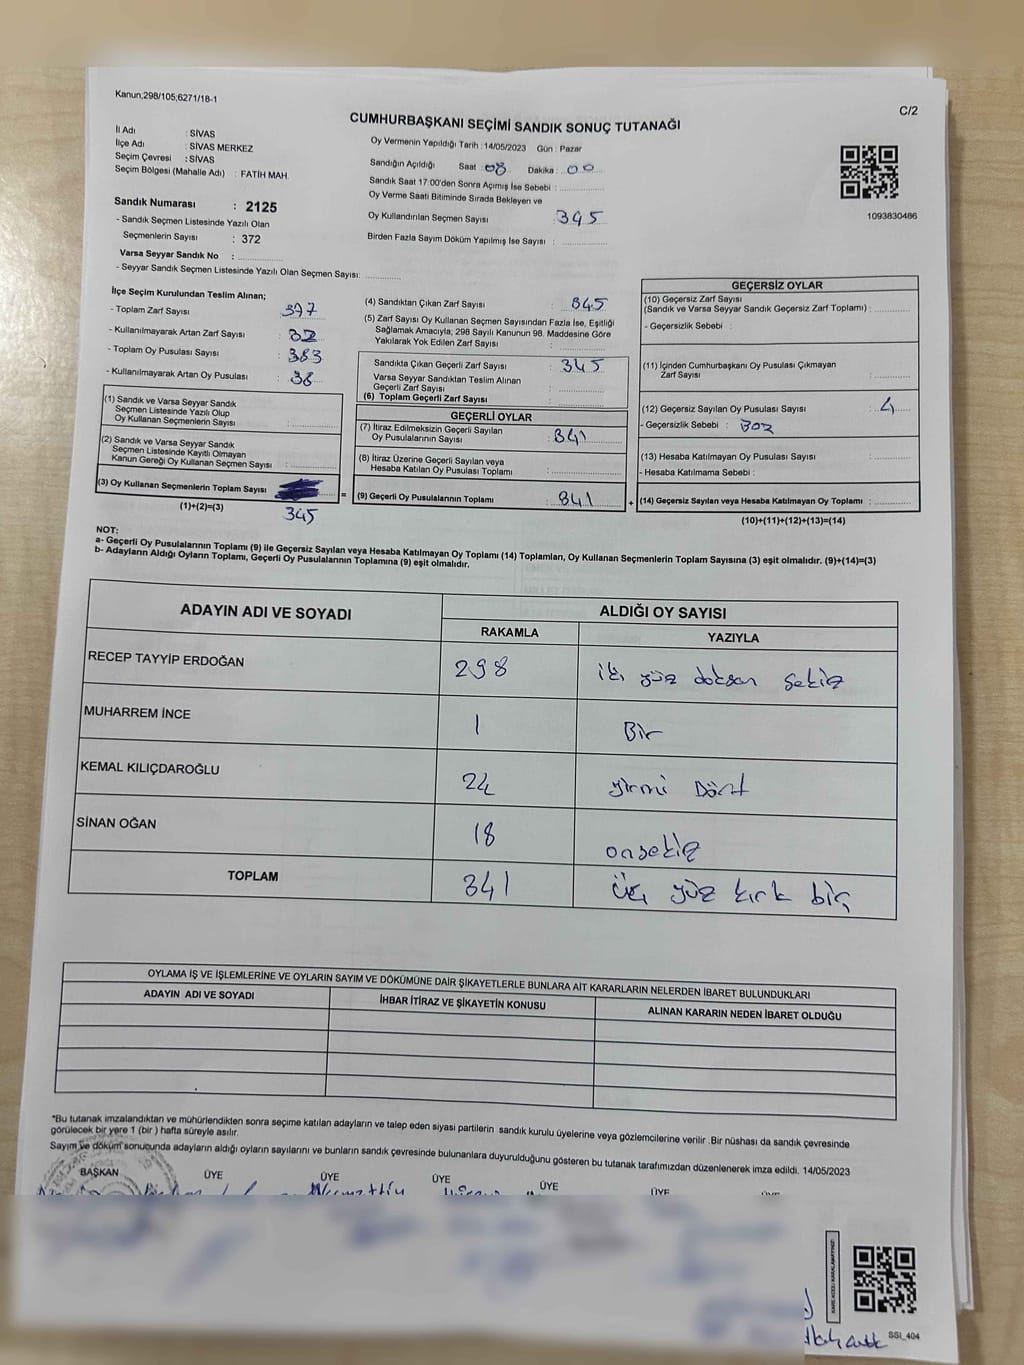 Kanun;298/105;6271/18-1
C/2
CUMHURBAŞKANI SEÇİMİ SANDIK SONUÇ TUTANAĞI
İl Adı : SİVAS
İlçe Adı : SİVAS MERKEZ
Seçim Çevresi : SİVAS
Seçim Bölgesi (Mahalle Adı) : FATİH MAH.
Sandık Numarası : 2125
- Sandık Seçmen Listesinde Yazılı Olan
Seçmenlerin Sayısı : 372
Varsa Seyyar Sandık No :
- Seyyar Sandık Seçmen Listesinde Yazılı Olan Seçmen Sayısı:
Oy Vermenin Yapıldığı Tarih : 14/05/2023 Gün : Pazar
Sandığın Açıldığı Saat 08 Dakika : 00
Sandık Saat 17:00'den Sonra Açımış İse Sebebi :
Oy Verme Saati Bitiminde Sırada Bekleyen ve
Oy Kullandırılan Seçmen Sayısı 345
Birden Fazla Sayım Döküm Yapılmış İse Sayısı :
1093830486
İlçe Seçim Kurulundan Teslim Alınan;
- Toplam Zarf Sayısı : 377
- Kullanılmayarak Artan Zarf Sayısı : 32
- Toplam Oy Pusulası Sayısı : 383
- Kullanılmayarak Artan Oy Pusulası : 38
(1) Sandık ve Varsa Seyyar Sandık
Seçmen Listesinde Yazılı Olup
Oy Kullanan Seçmenlerin Sayısı :
(2) Sandık ve Varsa Seyyar Sandık
Seçmen Listesinde Kayıtlı Olmayan
Kanun Gereği Oy Kullanan Seçmen Sayısı :
(3) Oy Kullanan Seçmenlerin Toplam Sayısı
(1)+(2)=(3) 345
(4) Sandıktan Çıkan Zarf Sayısı : 345
(5) Zarf Sayısı Oy Kullanan Seçmen Sayısından Fazla İse, Eşitliği
Sağlamak Amacıyla, 298 Sayılı Kanunun 98. Maddesine Göre
Yakılarak Yok Edilen Zarf Sayısı :
Sandıkta Çıkan Geçerli Zarf Sayısı : 345
Varsa Seyyar Sandıktan Teslim Alınan
Geçerli Zarf Sayısı :
(6) Toplam Geçerli Zarf Sayısı :
GEÇERLİ OYLAR
(7) İtiraz Edilmeksizin Geçerli Sayılan
Oy Pusulalarının Sayısı : 341
(8) İtiraz Üzerine Geçerli Sayılan veya
Hesaba Katılan Oy Pusulası Toplamı :
= (9) Geçerli Oy Pusulalarının Toplamı : 341 +
GEÇERSİZ OYLAR
(10) Geçersiz Zarf Sayısı
(Sandık ve Varsa Seyyar Sandık Geçersiz Zarf Toplamı) :
- Geçersizlik Sebebi :
(11) İçinden Cumhurbaşkanı Oy Pusulası Çıkmayan
Zarf Sayısı :
(12) Geçersiz Sayılan Oy Pusulası Sayısı : 4
- Geçersizlik Sebebi :
(13) Hesaba Katılmayan Oy Pusulası Sayısı :
- Hesaba Katılmama Sebebi :
(14) Geçersiz Sayılan veya Hesaba Katılmayan Oy Toplamı :
(10)+(11)+(12)+(13)=(14)
NOT:
a- Geçerli Oy Pusulalarının Toplamı (9) ile Geçersiz Sayılan veya Hesaba Katılmayan Oy Toplamı (14) Toplamları, Oy Kullanan Seçmenlerin Toplam Sayısına (3) eşit olmalıdır. (9)+(14)=(3)
b- Adayların Aldığı Oyların Toplamı, Geçerli Oy Pusulalarının Toplamına (9) eşit olmalıdır.
ADAYIN ADI VE SOYADI ALDIĞI OY SAYISI
RAKAMLA YAZIYLA
RECEP TAYYİP ERDOĞAN 298 iki yüz doksan sekiz
MUHARREM İNCE 1 Bir
KEMAL KILIÇDAROĞLU 24 yirmi Dört
SİNAN OĞAN 18 onsekiz
TOPLAM 341 üç yüz kırk bir
OYLAMA İŞ VE İŞLEMLERİNE VE OYLARIN SAYIM VE DÖKÜMÜNE DAİR ŞİKAYETLERLE BUNLARA AİT KARARLARIN NELERDEN İBARET BULUNDUKLARI
ADAYIN ADI VE SOYADI İHBAR İTİRAZ VE ŞİKAYETİN KONUSU ALINAN KARARIN NEDEN İBARET OLDUĞU
*Bu tutanak imzalandıktan ve mühürlendikten sonra seçime katılan adayların ve talep eden siyasi partilerin sandık kurulu üyelerine veya gözlemcilerine verilir .Bir nüshası da sandık çevresinde
görülecek bir yere 1 (bir ) hafta süreyle asılır.
Sayım ve döküm sonucunda adayların aldığı oyların sayılarını ve bunların sandık çevresinde bulunanlara duyurulduğunu gösteren bu tutanak tarafımızdan düzenlenerek imza edildi. 14/05/2023
BAŞKAN ÜYE ÜYE ÜYE ÜYE ÜYE
SSI_404